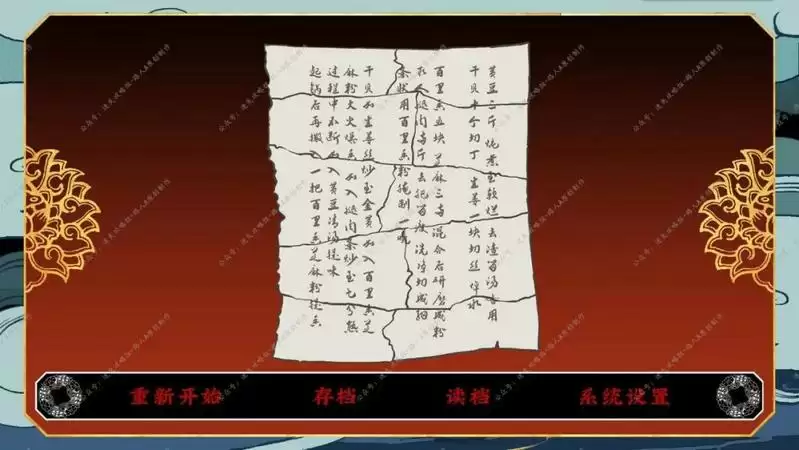 黄豆二斤 烧煮至软烂 去渣留汤备用
干贝十个切丁 生姜一块切丝焯水
百里香五块 芝麻三两混合后研磨成粉
腿肉两斤去把留皮 洗净切成细
条状用百里香粉腌制一晚
干贝加生姜丝炒至金黄加入百里香芝
麻粉大火爆香加入腿肉条炒至七分熟
过程中不断加入黄豆清汤提味
起锅后再撒入一把百里香芝麻粉提香
重新开始 存档 读档 系统设置